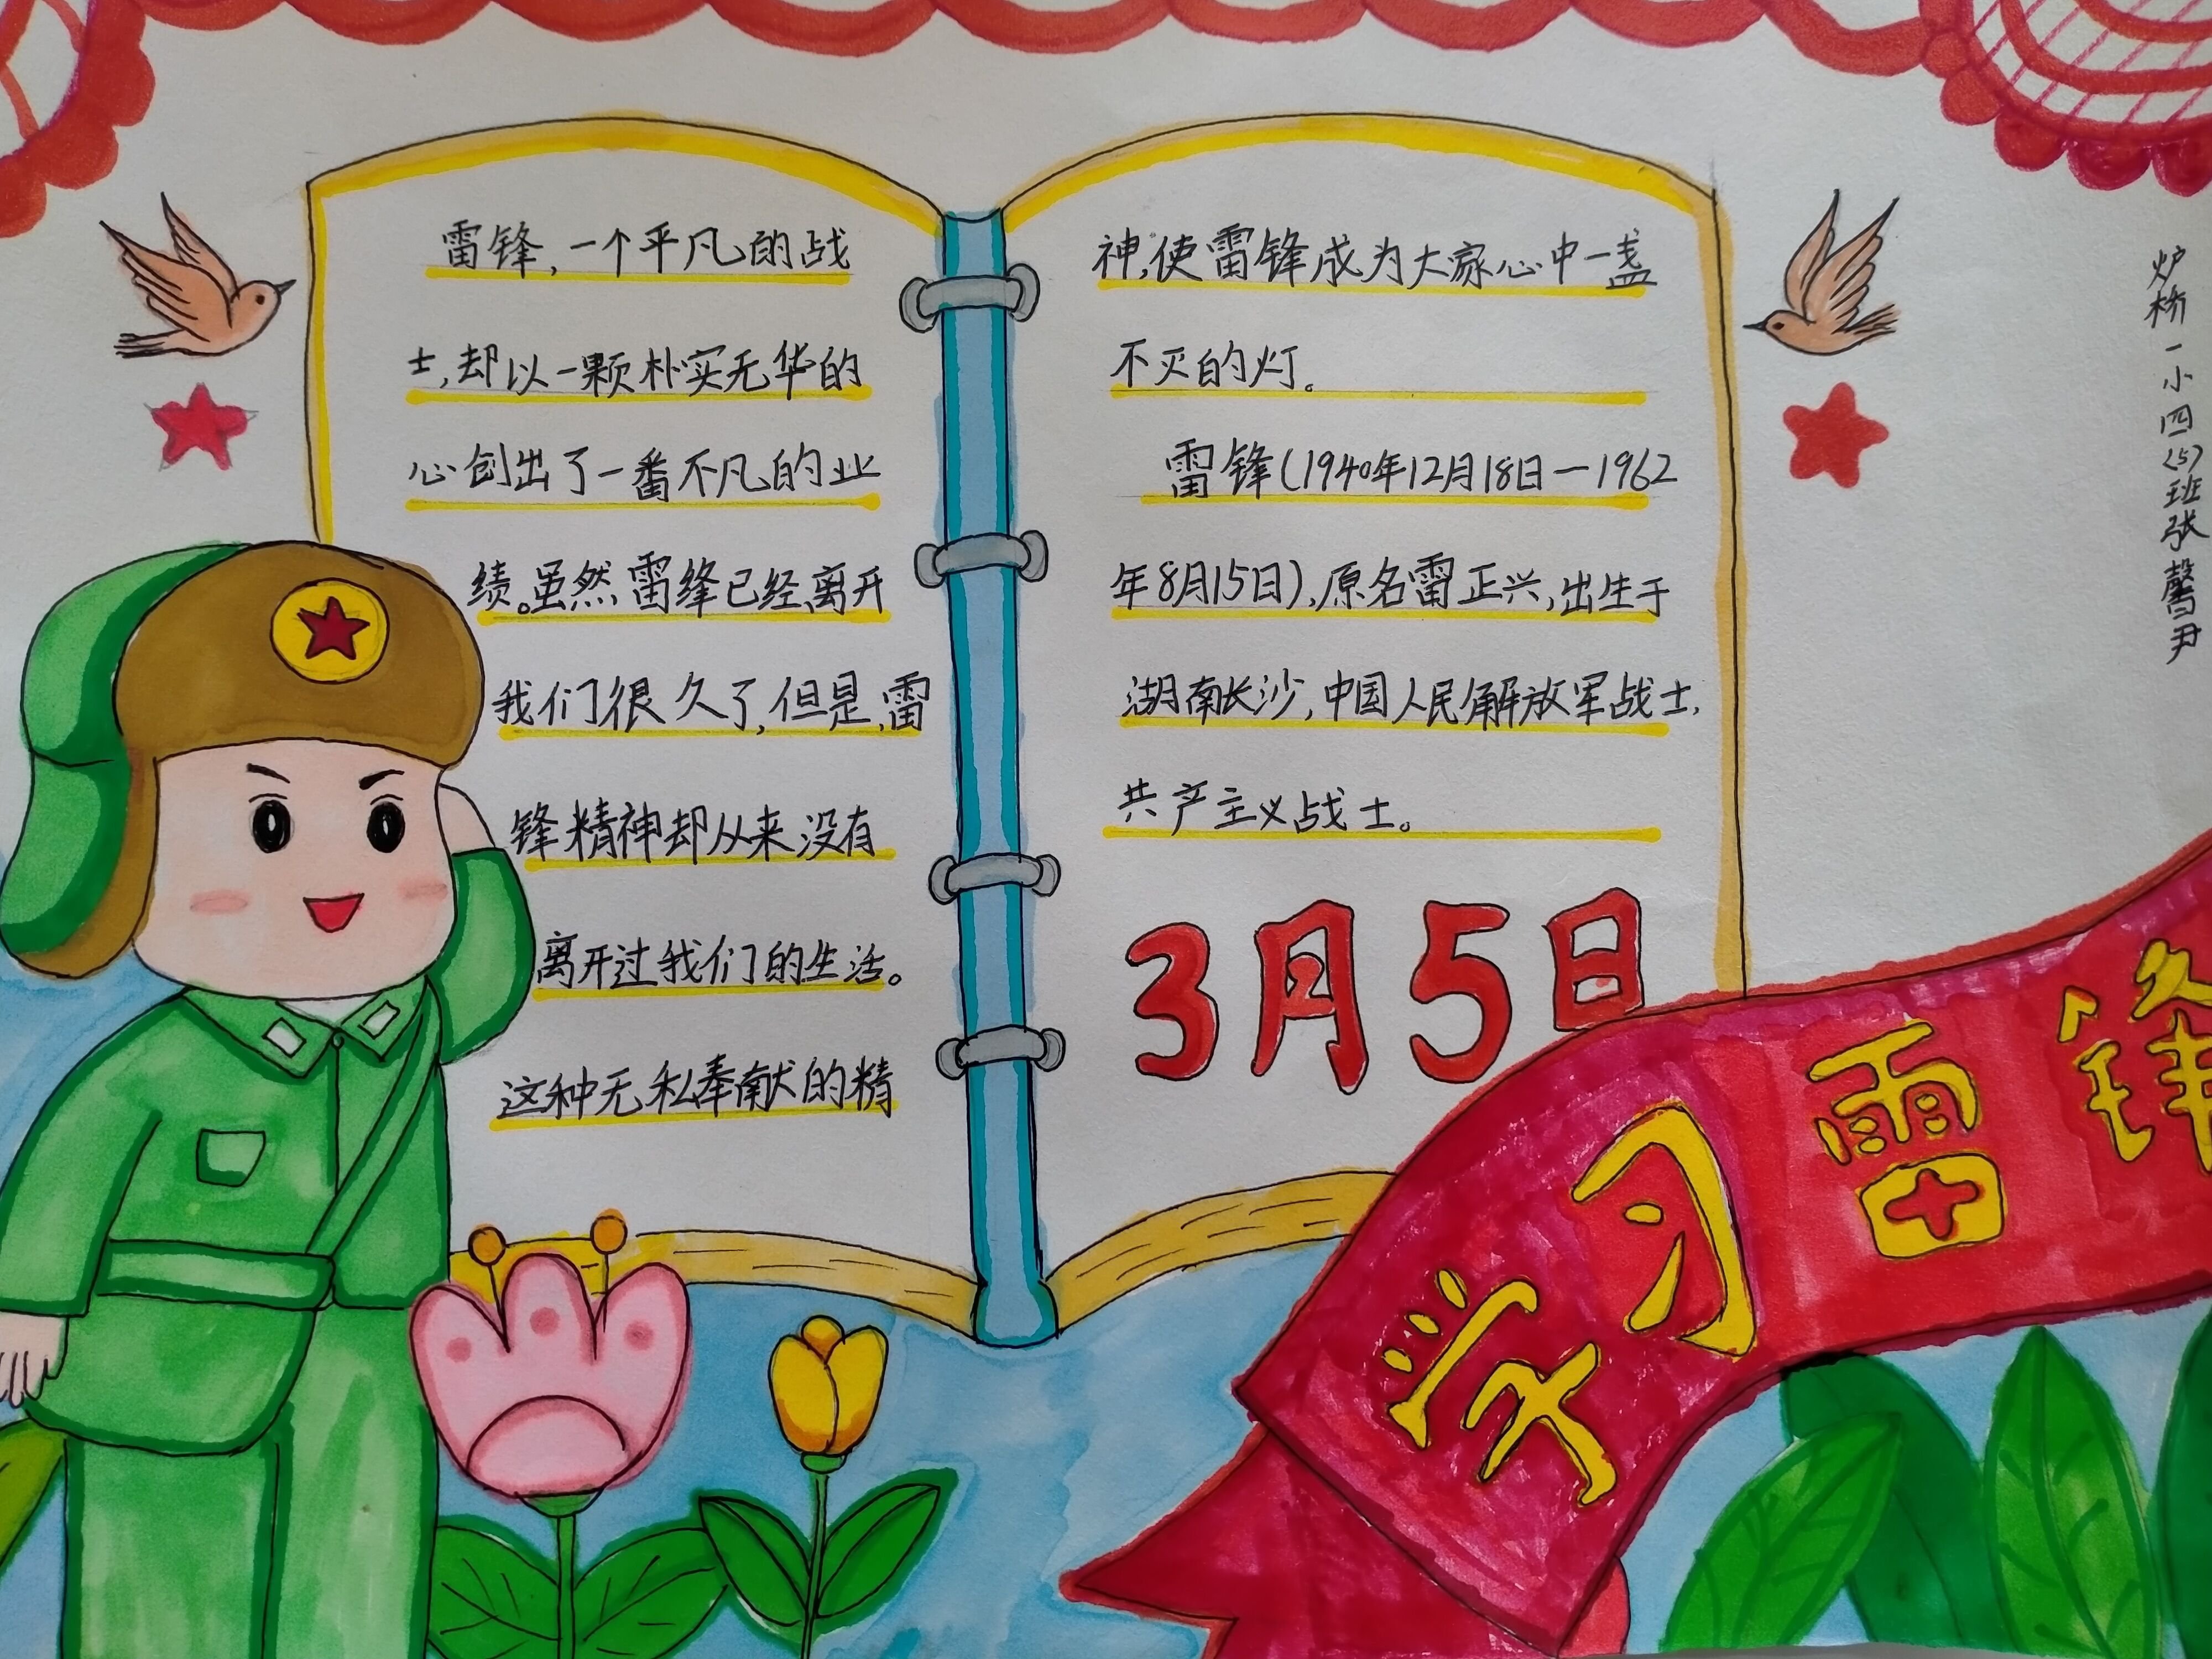 雷锋,一个平凡的战
士,却以一颗朴实无华的
心创出了一番不凡的业
绩。虽然雷锋已经离开
我们很久了,但是,雷
锋精神却从来没有
离开过我们的生活。
这种无私奉献的精
神,使雷锋成为大家心中一盏
不灭的灯。
雷锋(1940年12月18日—1962
年8月15日),原名雷正兴,出生于
湖南长沙,中国人民解放军战士,
共产主义战士。
3月5日
学习雷锋
炉桥一小四(5)班张馨尹